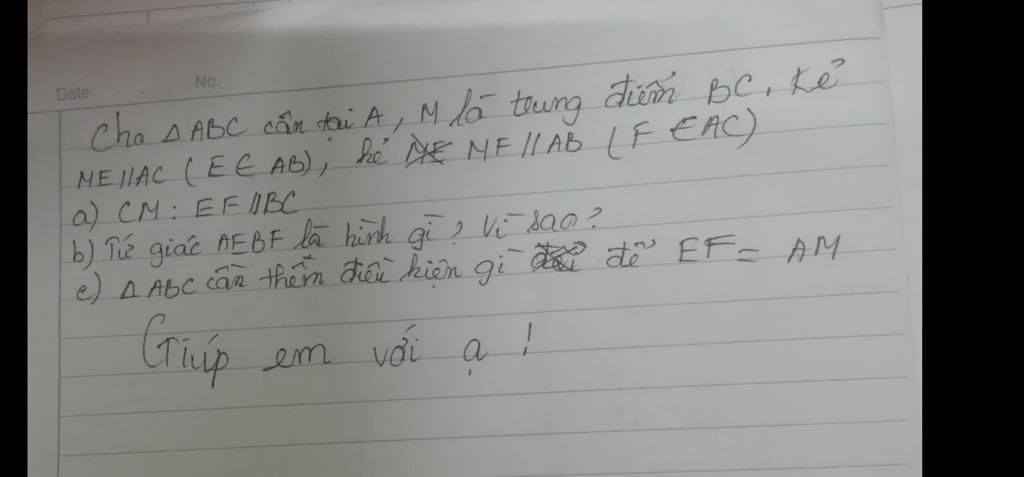 Date No.
Cho △ABC cân tại A, M là trung điểm BC. Kẻ
ME//AC (E∈AB), kẻ MF//AB (F∈AC)
a) CM: EF//BC
b) Tứ giác AEBF là hình gì? Vì sao?
c) △ABC cần thêm điều kiện gì để EF = AM
Giúp em với ạ!